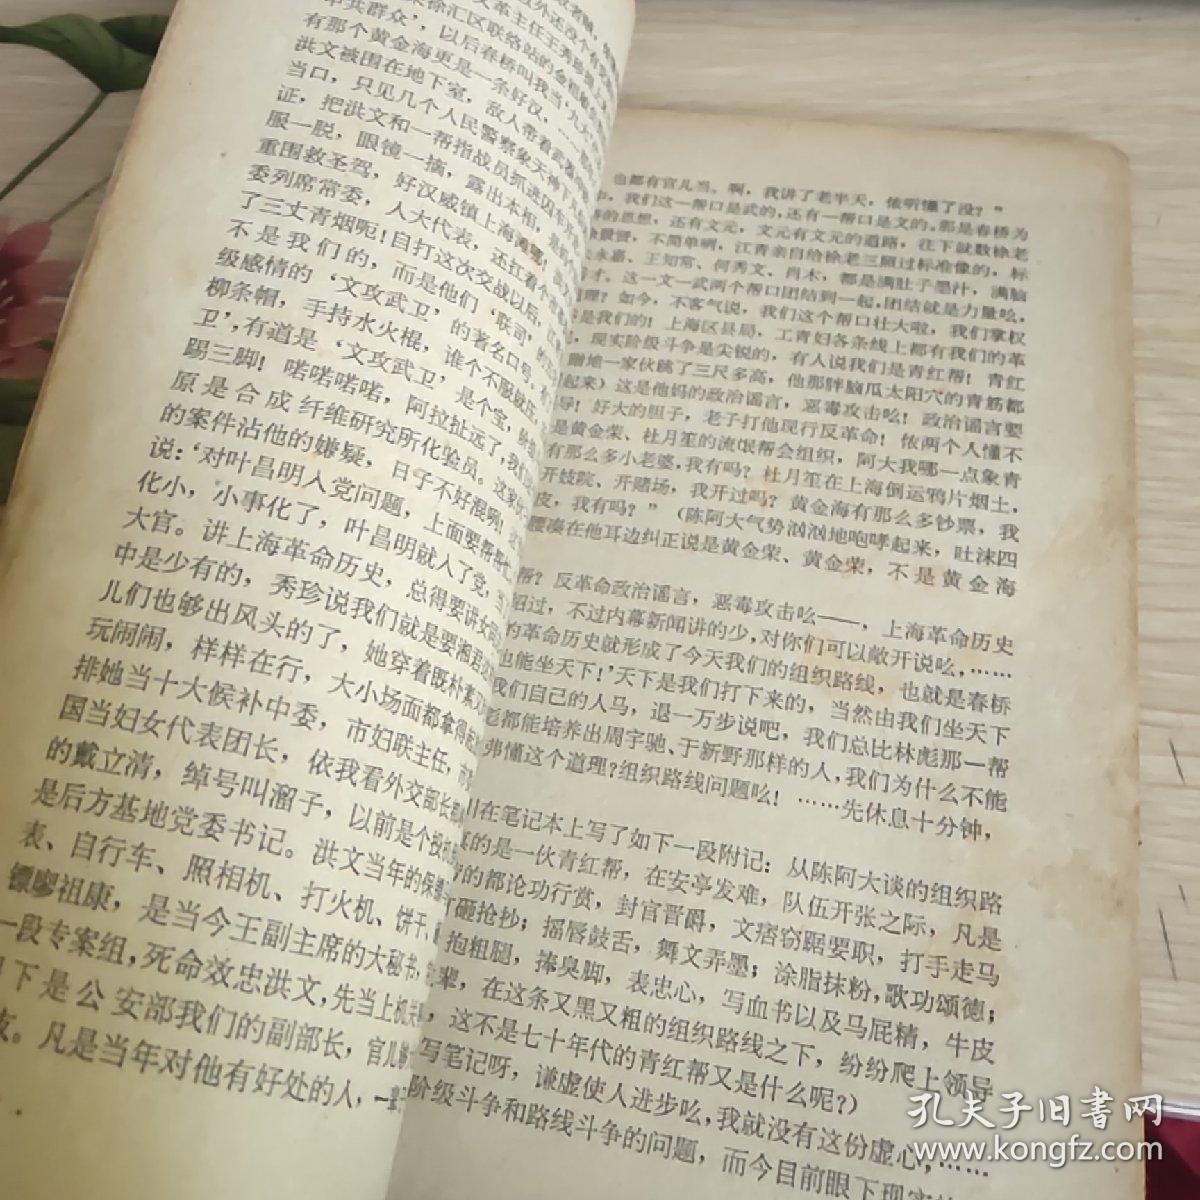 以外还没个有
文革主任王秀珍
徐汇区联络站的金祖敏
工兵群众’，以后春桥叫我当‘九大
有那个黄金海更是一条好汉，
洪文被围在地下室，敌人带着武器
当口，只见几个人民警察象天神下凡
证，把洪文和一帮指战员抓进囚车
服一脱，眼镜一摘，露出本相，是
重围救圣驾，好汉威镇上海滩！
委列席常委，人大代表，还扛着个
了三丈青烟呃！自打这次交战以后，
不是我们的，而是他们‘联司’的
级感情的‘文攻武卫’的著名口号，
柳条帽，手持水火棍，谁个不服就压
卫’，有道是‘文攻武卫’是个宝，
踢三脚！喏喏喏喏，阿拉扯远了，我们
原是合成纤维研究所化验员。这家
的案件沾他的嫌疑，日子不好混咧！
说：‘对叶昌明入党问题，上面要帮帮
化小，小事化了，叶昌明就入了党，当
大官。讲上海革命历史，总得要讲女
中是少有的，秀珍说我们就是要湘君
儿们也够出风头的了，她穿着既朴素又
玩闹闹，样样在行，大小场面都拿得
排她当十大候补中委，市妇联主任，市
国当妇女代表团长，依我看外交部长
的戴立清，绰号叫溜子，以前是个投机
是后方基地党委书记。洪文当年的保
表、自行车、照相机、打火机、饼干、
镖廖祖康，是当今王副主席的大秘书，
一段专案组，死命效忠洪文，先当上机
下是公安部我们的副部长，官儿
友。凡是当年对他有好处的人，一
也都有官儿当。啊，我讲了老半天，侬听懂了没？”
我们这一帮口是武的，还有一帮口是文的。那是春桥为
的思想，还有文元，文元有文元的道路，往下就数徐老
徐景贤，不简单咧，江青亲自给徐老三照过标准像的，标
永嘉、王知常、何秀文、肖木，都是满肚子墨汁，满脑
才。这一文一武两个帮口团结到一起，团结就是力量吆，
理？如今，不客气说，我们这个帮口壮大啦，我们掌权
是我们的！上海区县局，工青妇各条线上都有我们的革
现实阶级斗争是尖锐的，有人说我们是青红帮！青红
蹭地一家伙跳了三尺多高，他那胖脑瓜太阳穴的青筋都
起来）这是他妈的政治谣言，恶毒攻击吆！政治谣言要
导！好大的胆子，老子打他现行反革命！侬两个人懂不
是黄金荣、杜月笙的流氓帮会组织，阿大我哪一点象青
有那么多小老婆，我有吗？杜月笙在上海倒运鸦片烟土，
开妓院、开赌场，我开过吗？黄金海有那么多钞票，我
皮，我有吗？”（陈阿大气势汹汹地咆哮起来，吐沫四
腰凑在他耳边纠正说是黄金荣、黄金荣，不是黄金海
帮？反革命政治谣言，恶毒攻击吆——，上海革命历史
绍过，不过内幕新闻讲的少，对你们可以敞开说吆，……
的革命历史就形成了今天我们的组织路线，也就是春桥
也能坐天下！’天下是我们打下来的，当然由我们坐天下
我们自己的人马，退一万步说吧，我们总比林彪那一帮
彪都能培养出周宇驰、于新野那样的人，我们为什么不能
弗懂这个道理？组织路线问题吆！……先休息十分钟，
川在笔记本上写了如下一段附记：从陈阿大谈的组织路
真的是一伙青红帮，在安亭发难，队伍开张之际，凡是
的都论功行赏，封官晋爵，文痞窃踞要职，打手走马
打砸抢抄；摇唇鼓舌，舞文弄墨；涂脂抹粉，歌功颂德；
抱粗腿，捧臭脚，表忠心，写血书以及马屁精，牛皮
辈，在这条又黑又粗的组织路线之下，纷纷爬上领导
，这不是七十年代的青红帮又是什么呢？）
写笔记呀，谦虚使人进步吆，我就没有这份虚心，……
阶级斗争和路线斗争的问题，而今目前眼下现实
孔夫子旧书网
www.kongfz.com